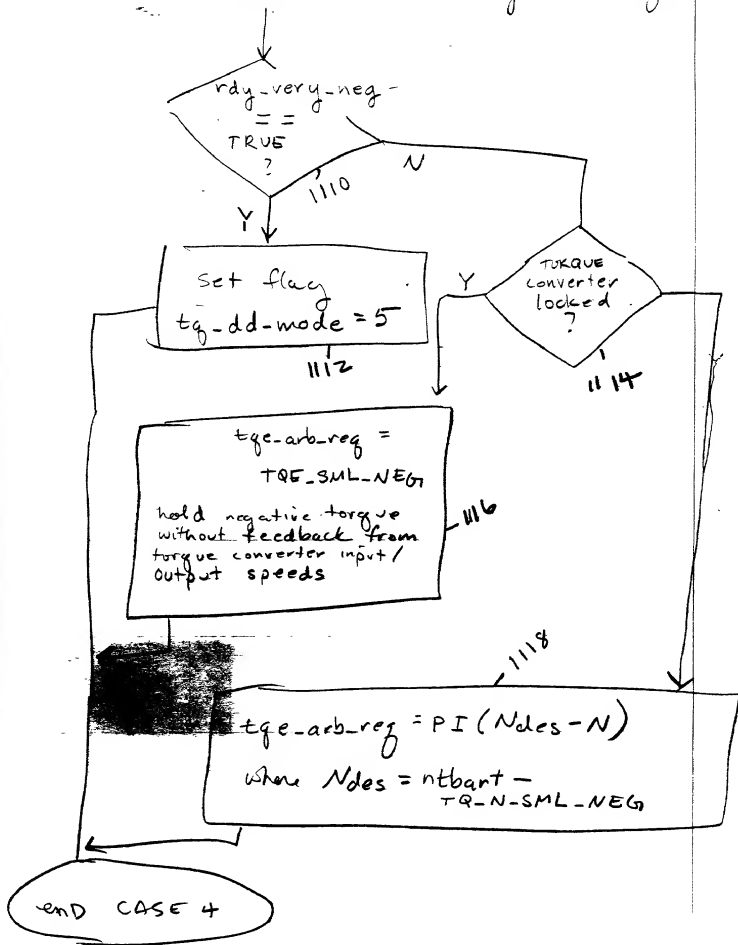 rdy_very_neg -
==
TRUE
?
1110
N
Y
set flag
tq_dd-mode = 5
1112
TURQUE
converter
locked
?
1114
Y
tqe_arb_req =
TQE_SML_NEG
hold negative torque
without feedback from
torque converter input/
output speeds
1116
1118
tqe_arb_req = PI(Ndes-N)
where Ndes = ntbart -
TQ_N_SML_NEG
end CASE 4